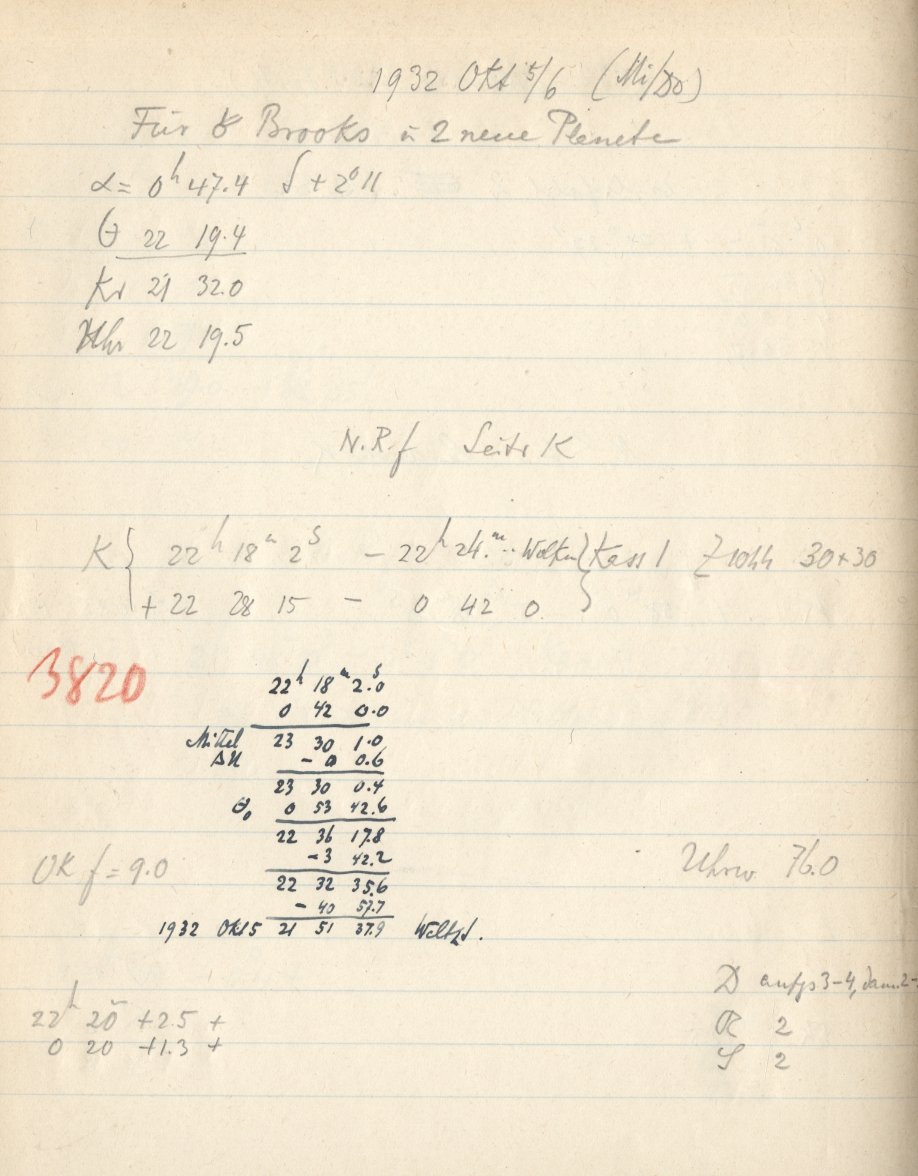 1932 Okt 5/6 (Mi/Do)
Für ☄ Brooks u 2 neue Planete
α = 0ʰ 47.4 δ + 2° 11
θ 22 19.4
Kr 21 32.0
Uhr 22 19.5
N.R.f Seite K
K { 22ʰ 18ᵐ 2ˢ – 22ʰ 24.ᵐ·· Wolken } Kass 1 Z 1044 30+30
+ 22 28 15 – 0 42 0
3820
22ʰ 18ᵐ 2.0ˢ
0 42 0.0
Mittel 23 30 1.0
ΔU – 0 0.6
23 30 0.4
θ₀ 0 53 42.6
22 36 17.8
-3 42.2
22 32 35.6
- 40 57.7
1932 Okt 5 21 51 37.9 Weltzt.
OK f = 9.0
Uhrw 76.0
D anfgs 3-4, dann 2-
22ʰ 20ᵐ +2.5 +
R 2
0 20 +1.3 +
S 2